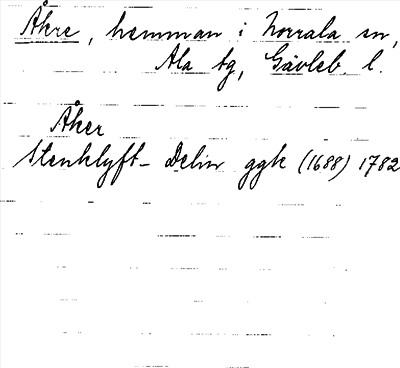 Åkre, hemman i Norrala sn,
Ala tg, Gävleb. l.
Åker
Stenklyft- Delin ggk (1688) 1782